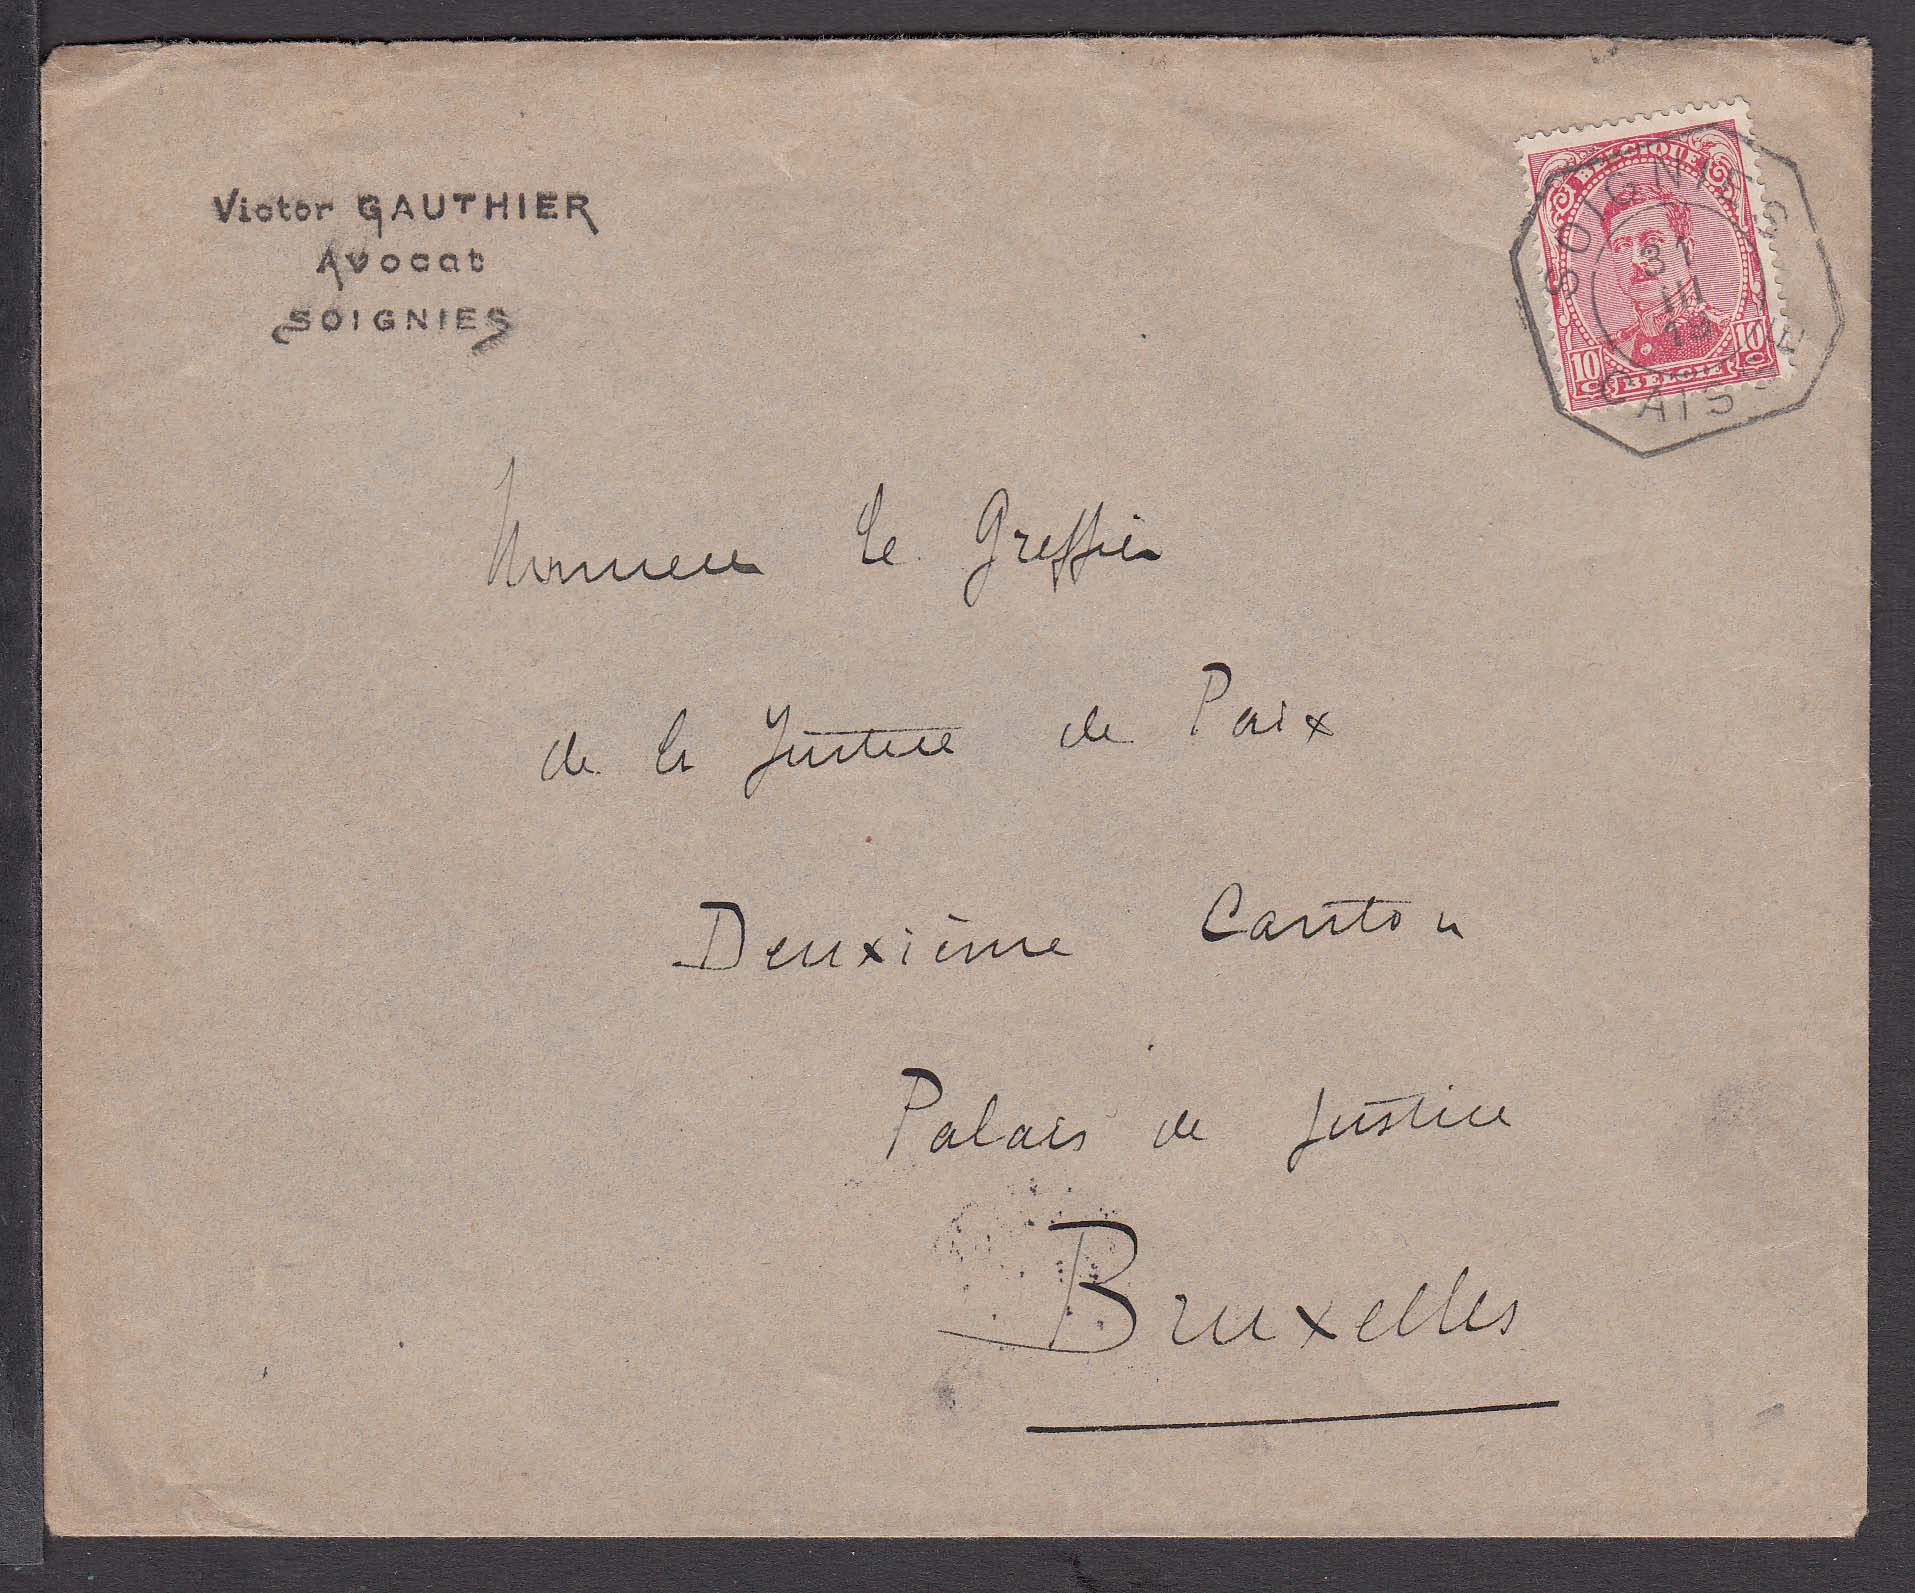 Victor GAUTHIER
Avocat
SOIGNIES
BELGIQUE
10c BELGIË 10c
SOIGNIES
31
III
19
CAISSE
Monsieur le Greffier
de la Justice de Paix
Deuxième Canton
Palais de Justice
Bruxelles